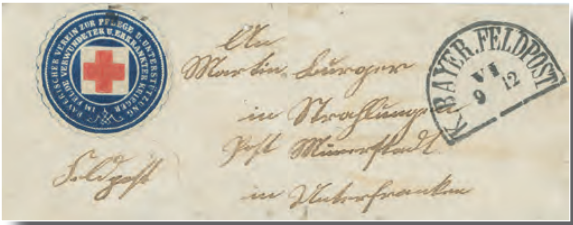 BAYERISCHER VEREIN ZUR PFLEGE U. UNTERSTÜTZUNG
IM FELDE VERWUNDETER U. ERKRANKTER KRIEGER
An
Martin Burger
in Strahlungen
Post Münnerstadt
in Unterfranken
Feldpost
K. BAYER. FELDPOST
VI
9 12